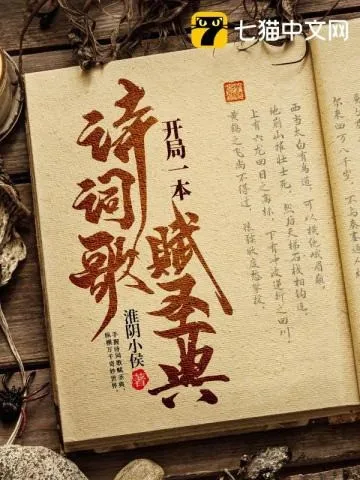 七猫中文网
开局一本
诗词歌
赋圣典
淮阴小侯 著
手握诗词歌赋圣典,
纵横万千奇妙世界。
尔来四万八千岁,不与秦塞
西当太白有鸟道,可以横绝峨眉巅。
地崩山摧壮士死,然后天梯石栈相钩连。
上有六龙回日之高标,下有冲波逆折之回川。
黄鹤之飞尚不得过,猿猱欲度愁攀援。